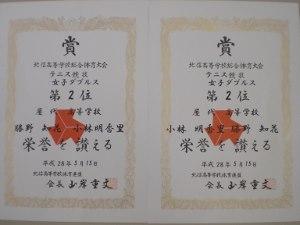 賞
北信高等学校総合体育大会
テニス競技
女子ダブルス
第2位
屋代 高等学校
勝野 知花 小林明香里
栄誉を讃える
平成28年5月15日
北信高等学校体育連盟
会長 山岸重文
賞
北信高等学校総合体育大会
テニス競技
女子ダブルス
第2位
屋代 高等学校
小林 明香里 勝野 知花
栄誉を讃える
平成28年5月15日
北信高等学校体育連盟
会長 山岸重文